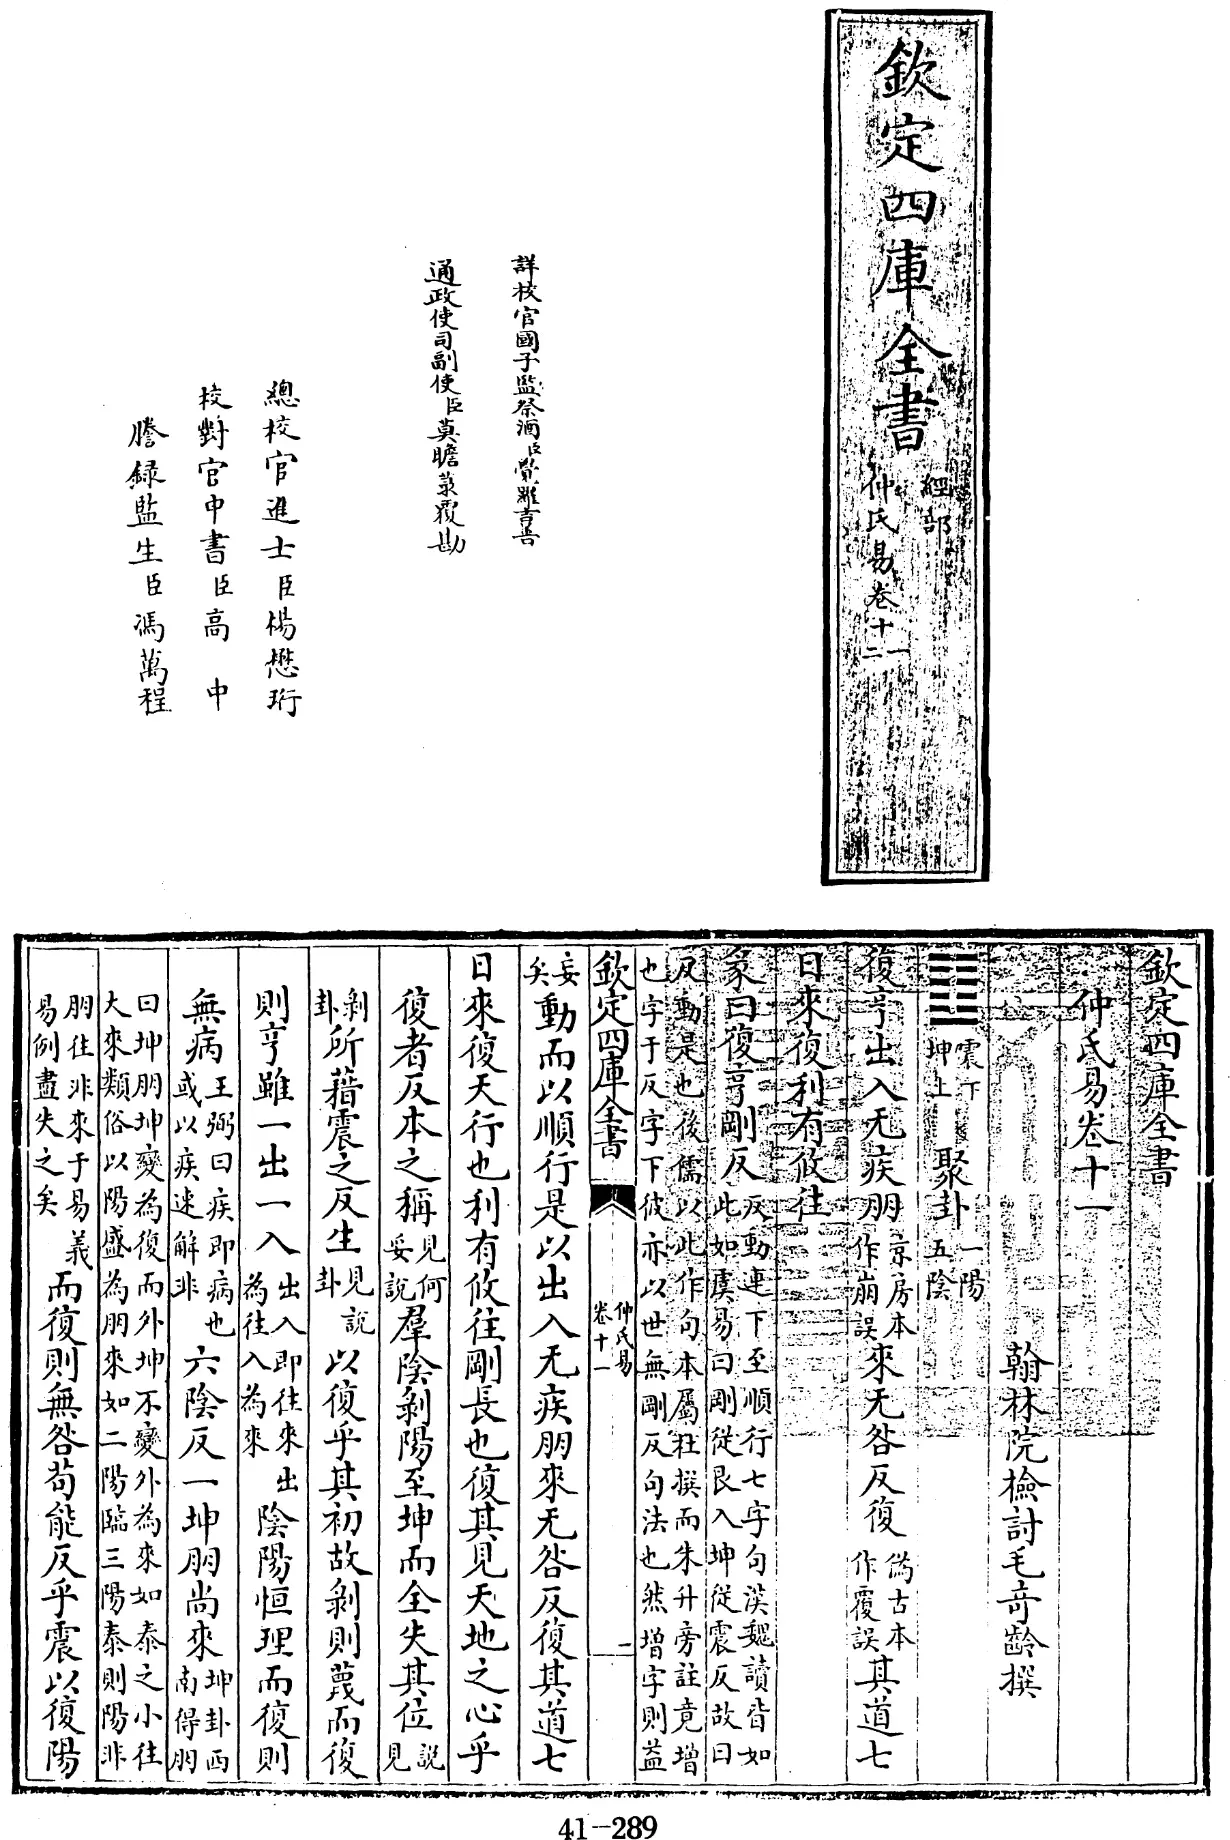 欽定四庫全書
經部
仲氏易卷十一二
詳校官國子監祭酒臣覺羅吉善
通政使司副使臣莫瞻菉覆勘
總校官進士臣楊懋珩
校對官中書臣高中
謄録監生臣馮萬程
欽定四庫全書
仲氏易卷十一
翰林院檢討毛奇齡撰
䷗震下坤上聚卦一陽五陰
復亨出入无疾朋京房本作崩誤來无咎反復偽古本作覆誤其道七
日來復利有攸往
彖曰復亨剛反反動連下至順行七字句漢魏讀皆如此如虞易曰剛從艮入坤從震反故曰
反動是也後儒以此作句本屬杜撰而朱升旁註竟增也字于反字下彼亦以世無剛反句法也然增字則益
欽定四庫全書 仲氏易卷十一 二
妄矣動而以順行是以出入无疾朋來无咎反復其道七
日來復天行也利有攸往剛長也復其見天地之心乎
復者反本之稱見何妥說羣陰剝陽至坤而全失其位說見
剝卦所藉震之反生見說卦以復乎其初故剝則蔑而復
則亨雖一出一入出入即往來出為往入為來陰陽恒理而復則
無病王弼曰疾即病也或以疾速解非六陰反一坤朋尚來坤卦西南得朋
曰坤朋坤變為復而外坤不變外為來如泰之小往大來類俗以陽盛為朋來如二陽臨三陽泰則陽非
朋往非來于易義易例盡失之矣而復則無咎苟能反乎震以復陽
41-289